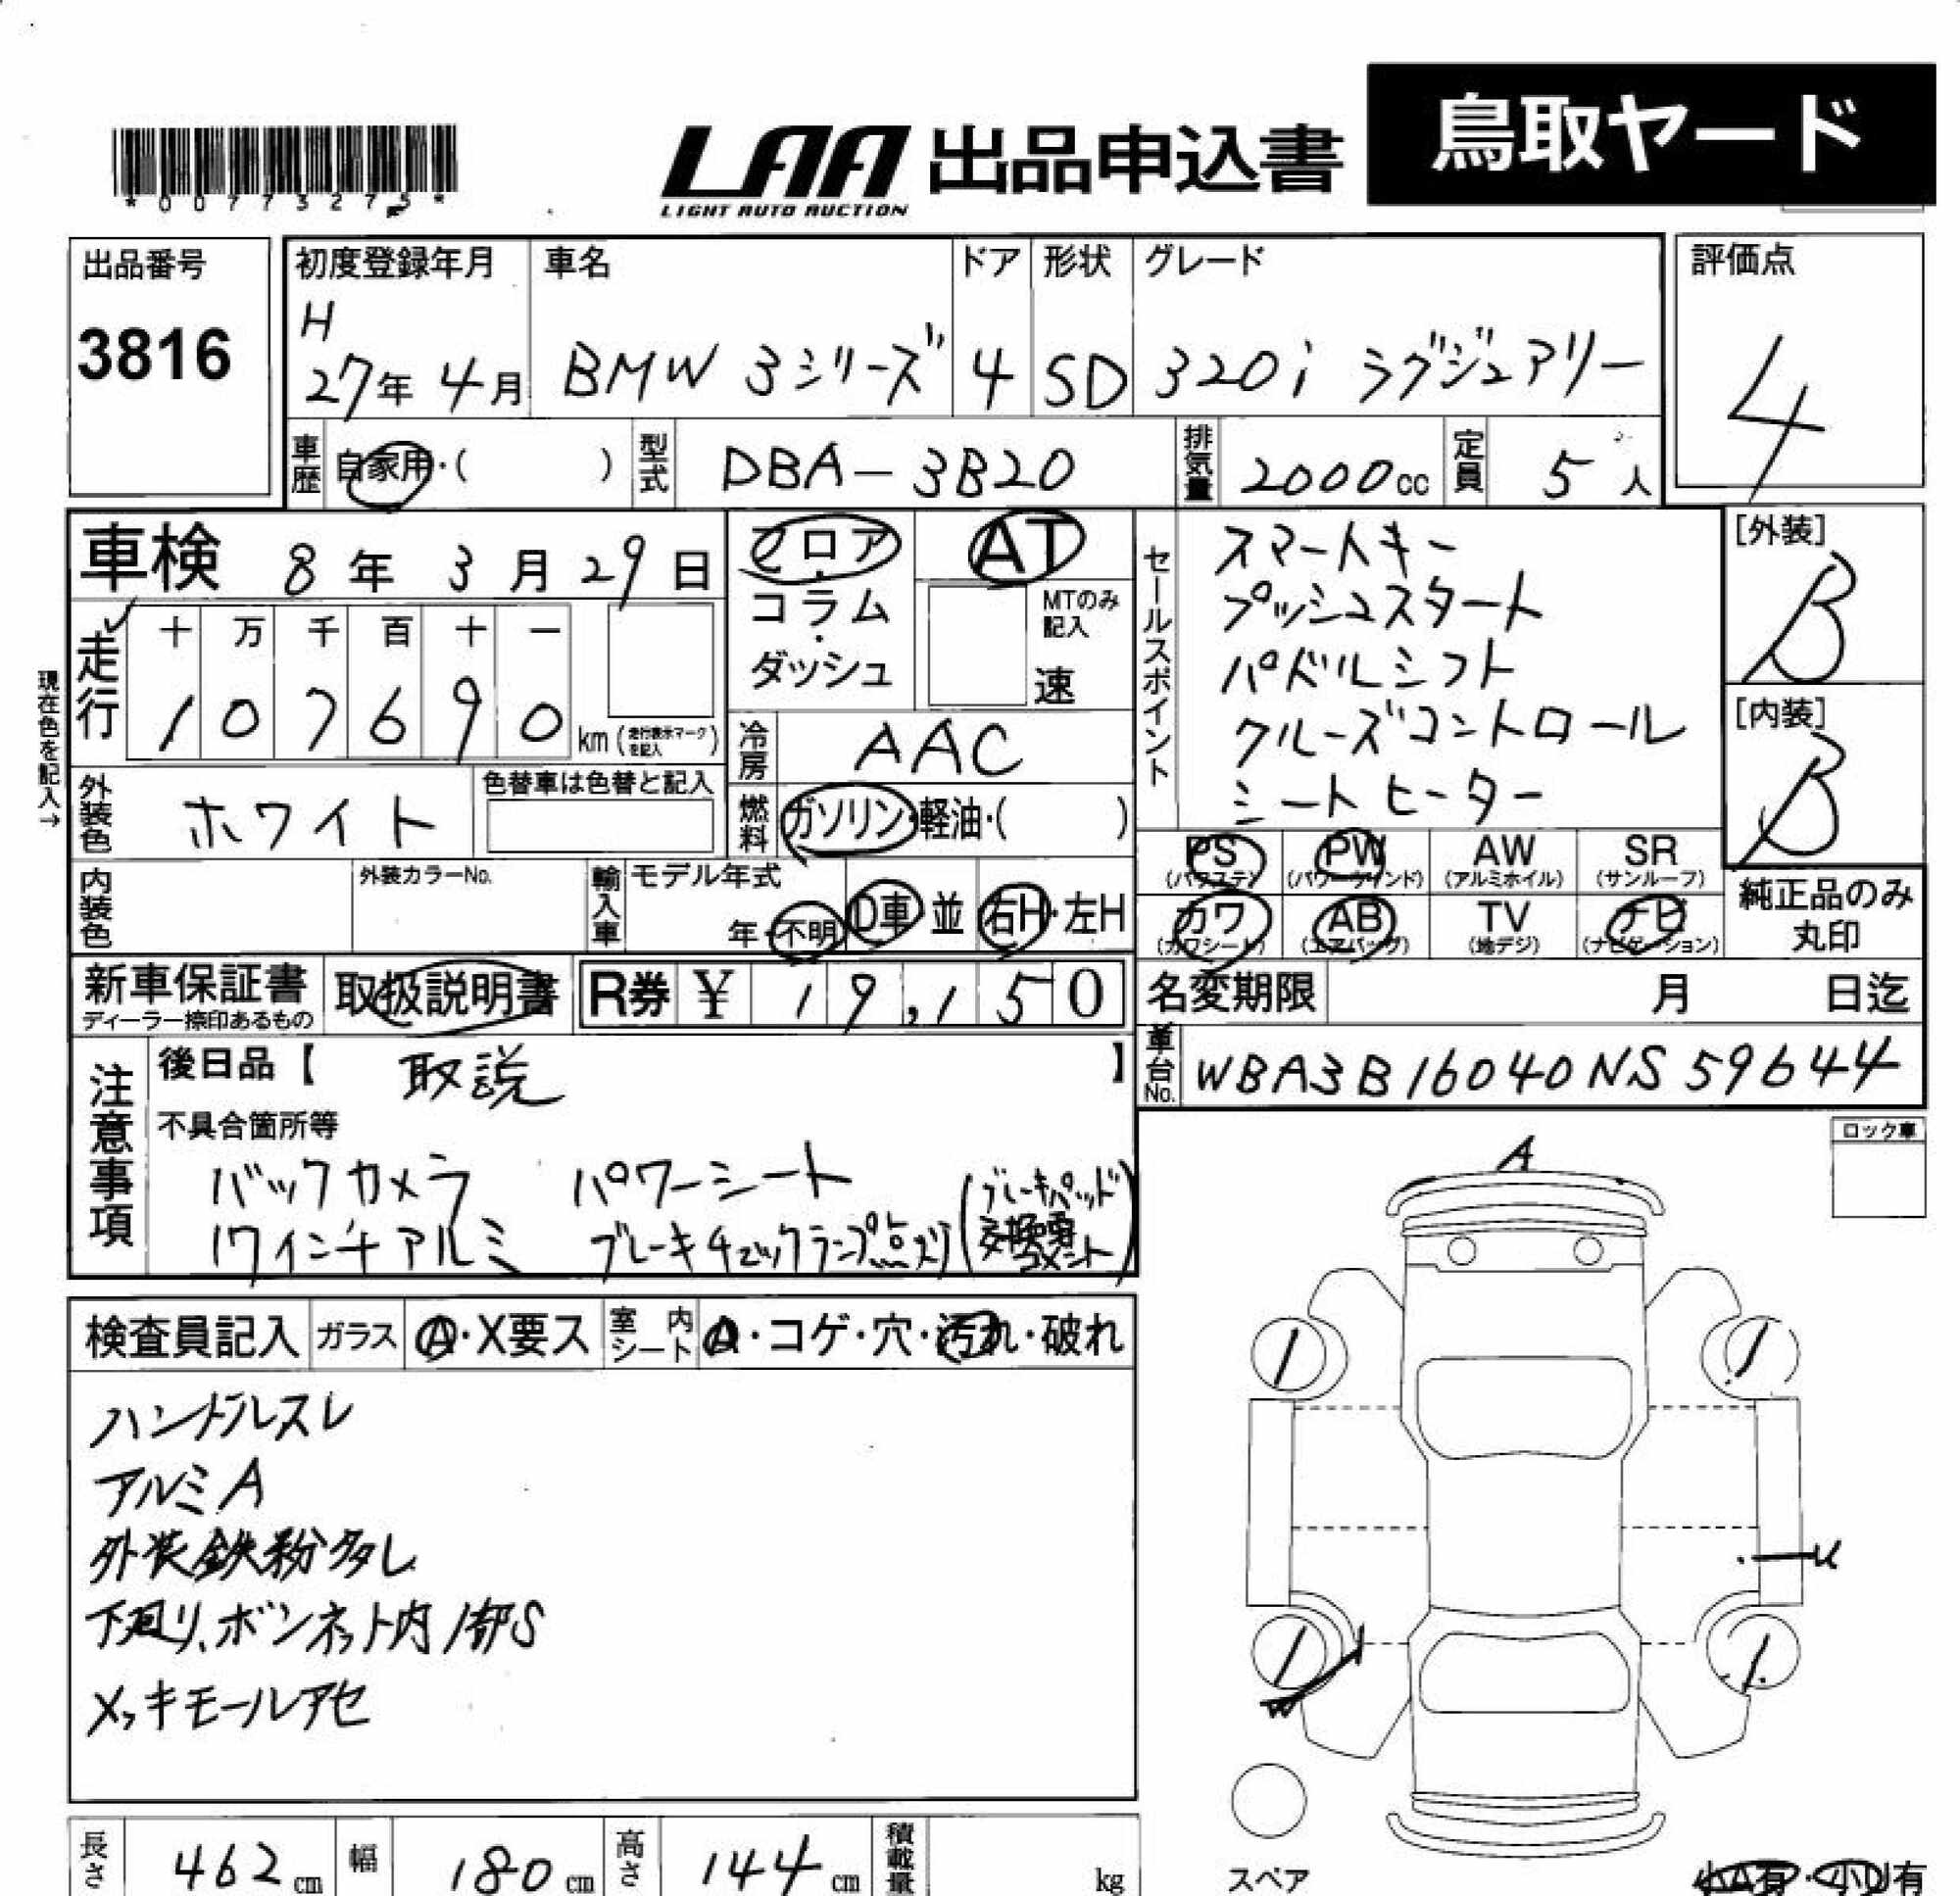 鳥取ヤード
*00773275*
LAA 出品申込書
LIGHT AUTO AUCTION
出品番号
3816
初度登録年月
H
27年 4月
車名
BMW 3シリーズ
ドア
4
形状
SD
グレード
320i ラグジュアリー
評価点
4
車歴 自家用・( )
型式 DBA-3B20
排気量 2000cc
定員 5人
車検 8年 3月 29日
フロア・
コラム・
ダッシュ
AT
MTのみ記入
速
セールスポイント
スマートキー
プッシュスタート
パドルシフト
クルーズコントロール
シートヒーター
[外装]
B
[内装]
B
現在色を記入→
走行
十 万 千 百 十 一
1 0 7 6 9 0 km(走行表示マークを記入)
冷房 AAC
外装色 ホワイト
色替車は色替と記入
燃料 ガソリン・軽油・( )
内装色
外装カラーNo.
輸入車
モデル年式
年・不明
D車 並
右H・左H
PS
(パワステ)
PW
(パワーウインド)
AW
(アルミホイル)
SR
(サンルーフ)
カワ
(カワシート)
AB
(エアバッグ)
TV
(地デジ)
ナビ
(ナビゲーション)
純正品のみ
丸印
新車保証書
ディーラー捺印あるもの
取扱説明書
R券 ¥ 19,150
名変期限 月 日迄
車台No. WBA3B16040NS59644
注意事項
後日品【 取説 】
不具合箇所等
バックカメラ パワーシート
17インチアルミ ブレーキチェックランプ点灯(ブレーキパッド交換要コメント)
ロック車
A
検査員記入 ガラス A・X要ス 室内シート A・コゲ・穴・汚れ・破れ
ハンドルスレ
アルミA
外装鉄粉多し
下廻り、ボンネット内1部S
メッキモールアセ
U
W
長さ 462cm
幅 180cm
高さ 144cm
積載量 kg
スペア
小A有・小U有